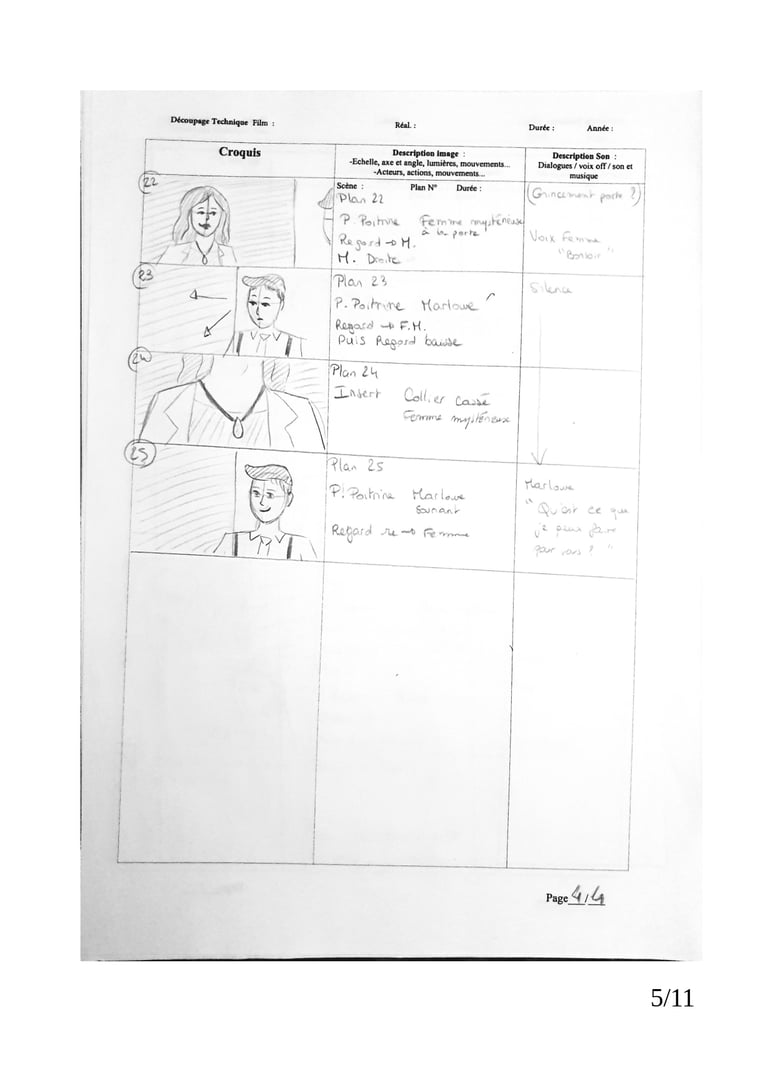 Découpage Technique Film :
Réal. :
Durée :
Année :
Croquis
Description image :
-Echelle, axe et angle, lumières, mouvements...
-Acteurs, actions, mouvements...
Description Son :
Dialogues / voix off / son et
musique
Scène :
Plan N°
Durée :
22
Plan 22
P. Poitrine Femme mystérieuse
à la porte
Regard → M.
M. Droite
(Grincement porte ?)
Voix Femme
"Bonsoir"
23
Plan 23
P. Poitrine Marlowe
Regard → F.M.
Puis Regard baisse
Silence
24
Plan 24
Insert Collier cassé
Femme mystérieuse
25
Plan 25
P. Poitrine Marlowe
Souriant
Regard re → Femme
Marlowe
"Qu'est ce que
je peux faire
pour vous ? "
Page 4/4
5/11